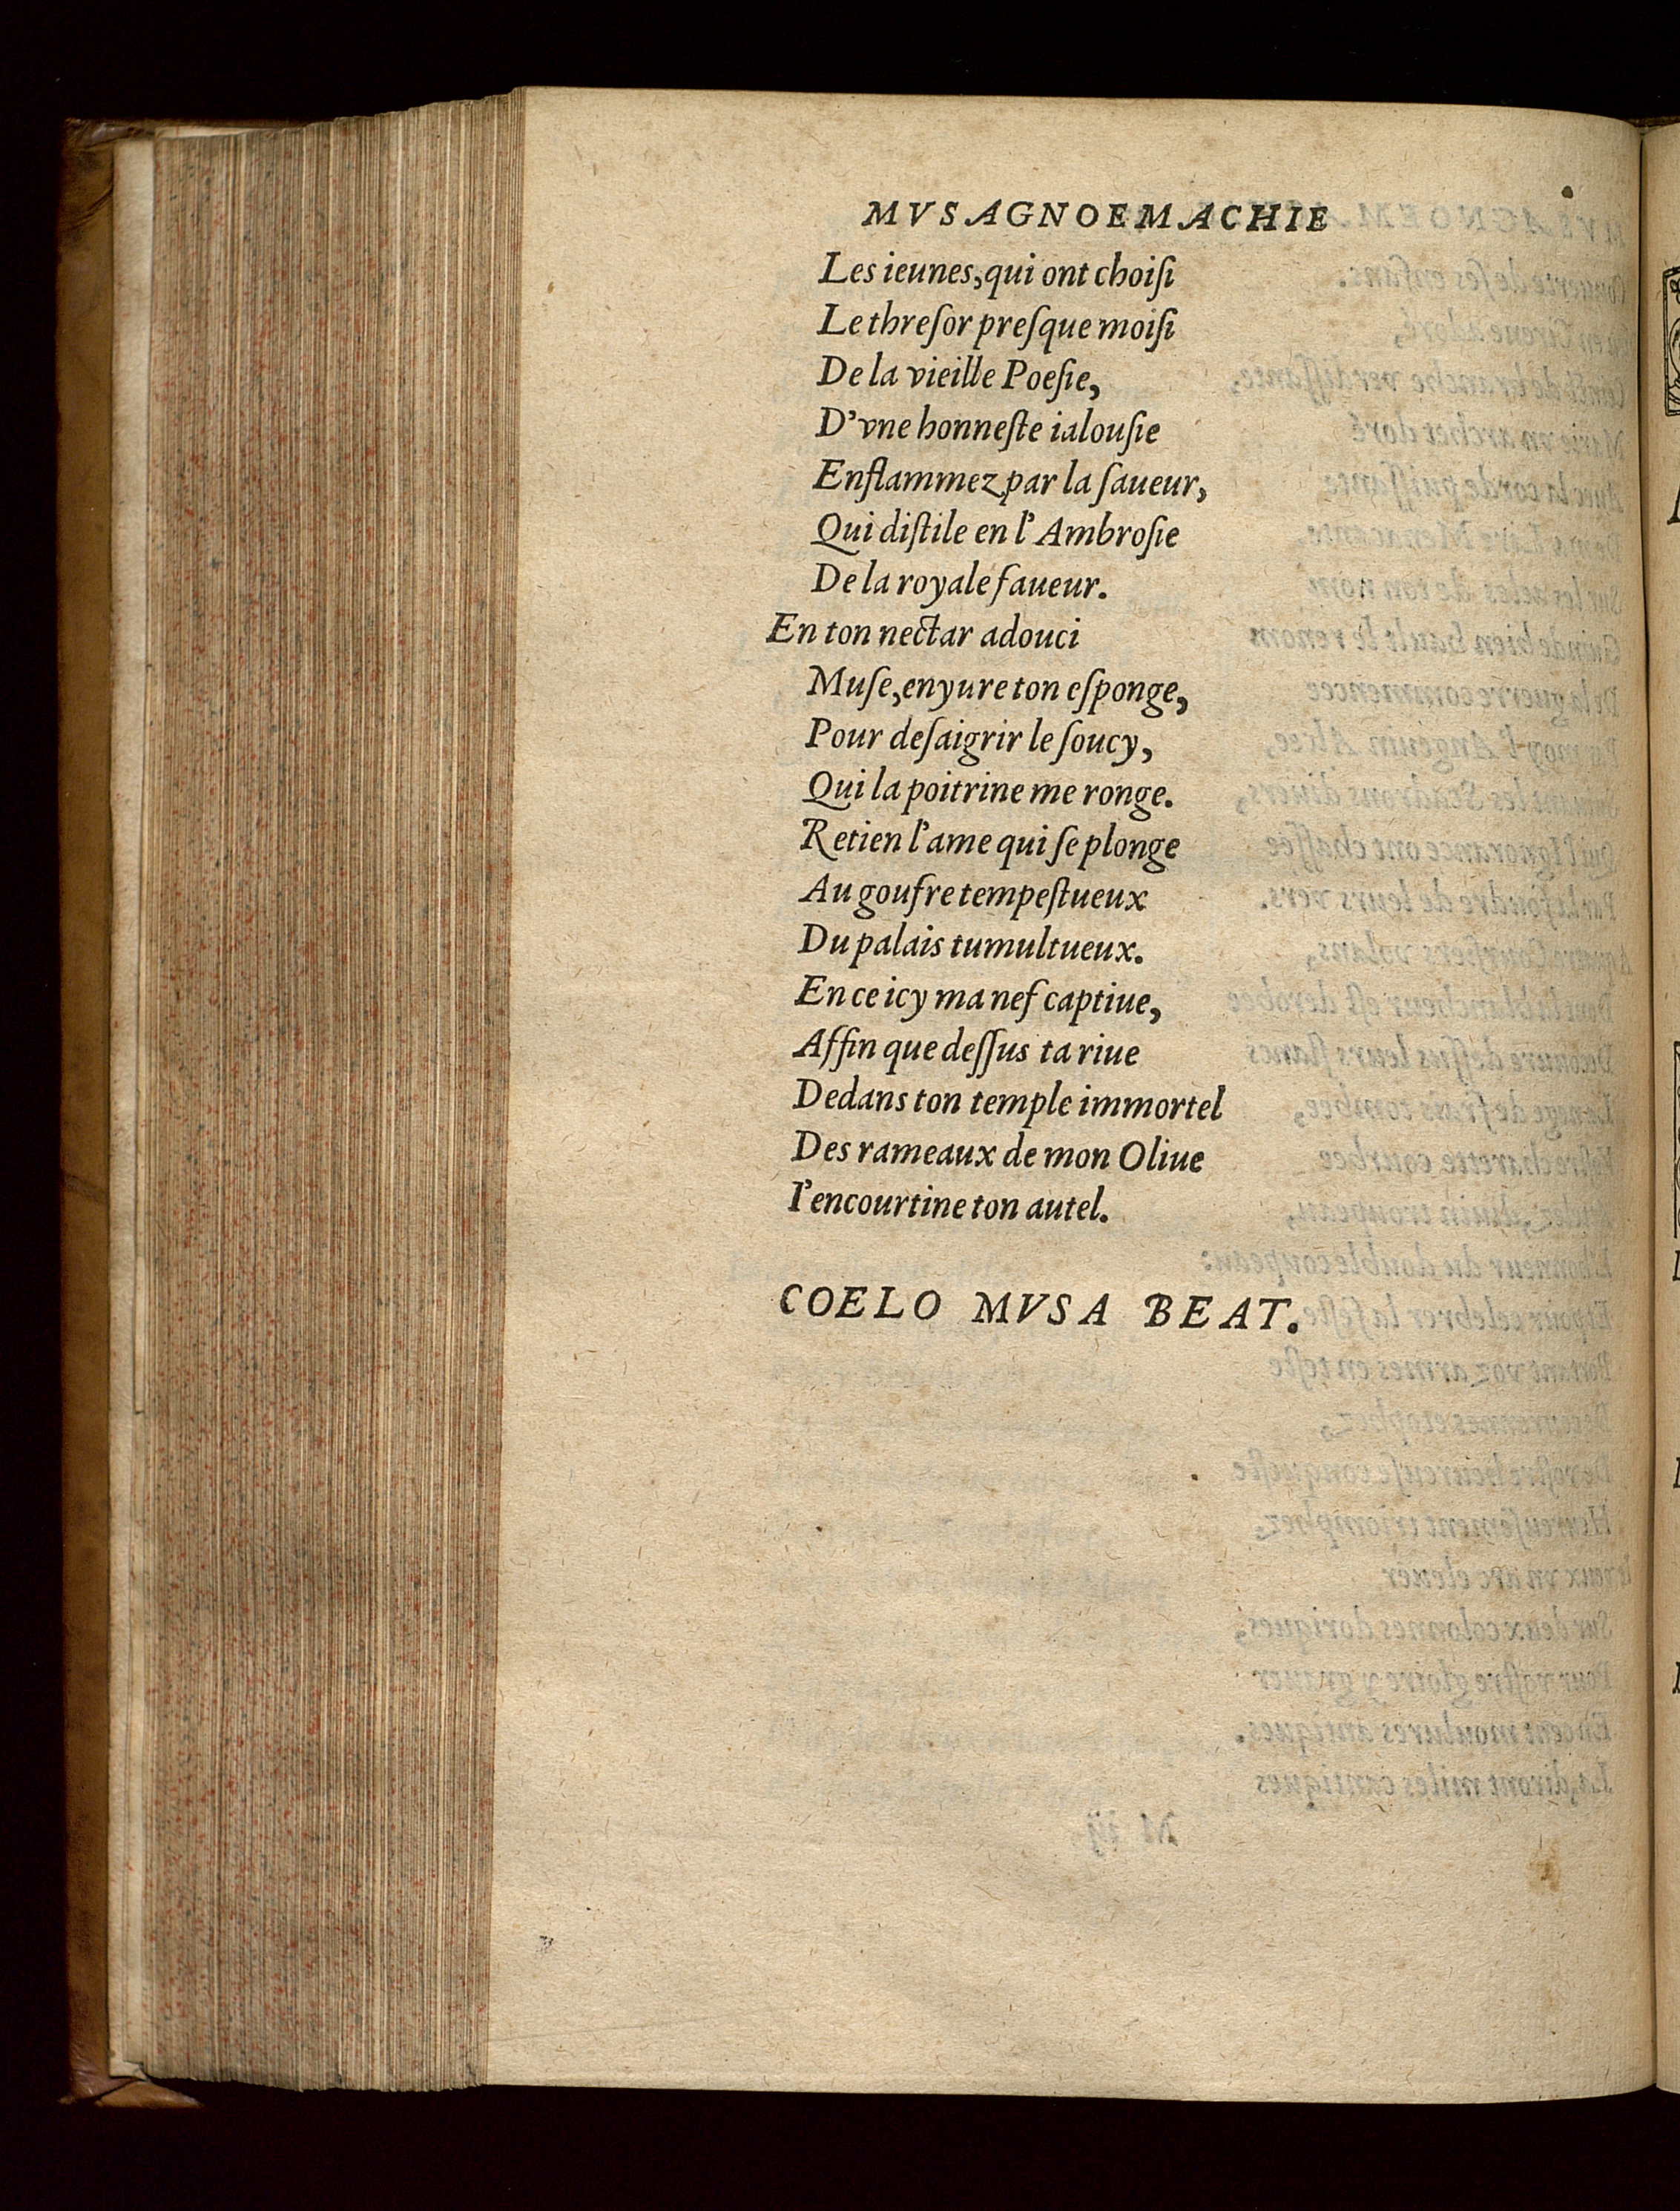 MVSAGNOEMACHIE
Les ieunes, qui ont choiſi
Le threſor preſque moiſi
De la vieille Poeſie,
D'vne honneſte ialouſie
Enflammez par la ſaueur,
Qui diſtile en l'Ambroſie
De la royale faueur.
En ton nectar adouci
Muſe, enyure ton eſponge,
Pour deſaigrir le ſoucy,
Qui la poitrine me ronge.
Retien l'ame qui ſe plonge
Au goufre tempeſtueux
Du palais tumultueux.
Ence icy ma nef captiue,
Affin que deſſus ta riue
Dedans ton temple immortel
Des rameaux de mon Oliue
I'encourtine ton autel.
COELO MVSA BEAT.